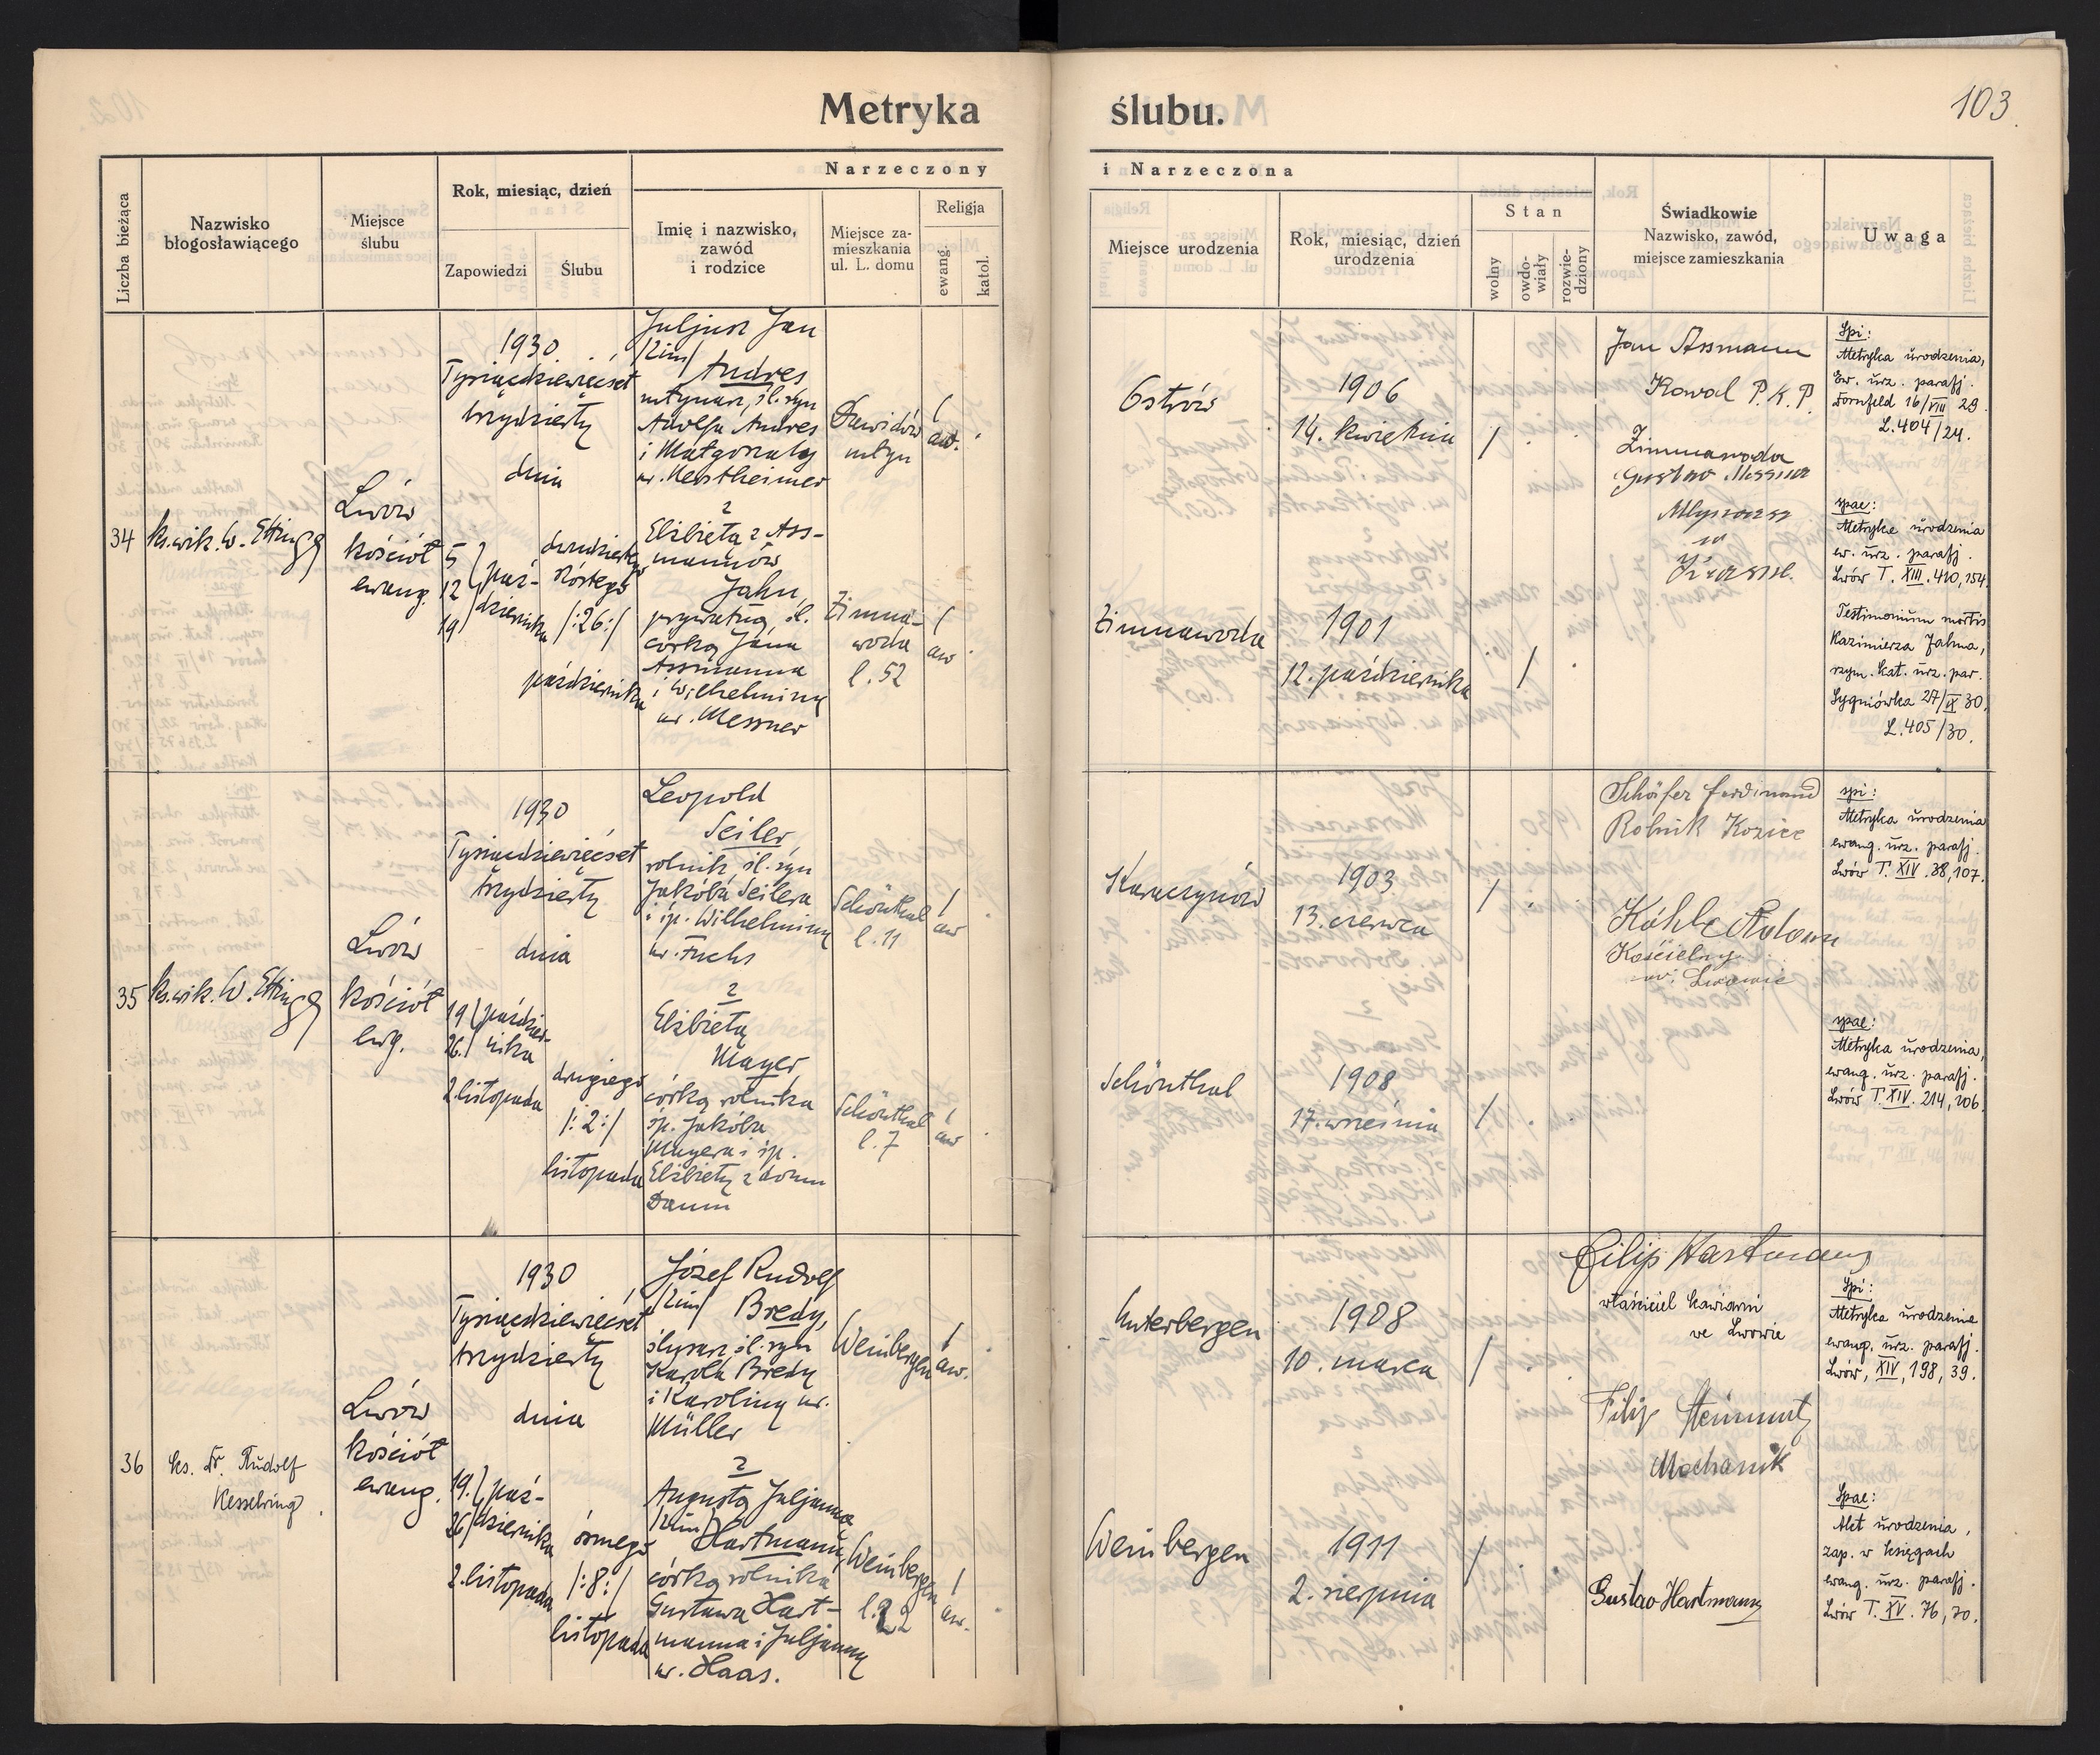 Metryka ślubu.
103.
Liczba bieżąca
Nazwisko
błogosławiącego
Miejsce
ślubu
Rok, miesiąc, dzień
Zapowiedzi
Ślubu
Narzeczony
i Narzeczona
Imię i nazwisko,
zawód
i rodzice
Miejsce za-
mieszkania
ul. L. domu
Religja
ewang.
katol.
Miejsce urodzenia
Rok, miesiąc, dzień
urodzenia
Stan
wolny
owdo-
wiały
rozwie-
dziony
Świadkowie
Nazwisko, zawód,
miejsce zamieszkania
Uwaga
34
ks. wik. W. Ettinger
Lwów
kościół
ewang.
1930
Tysiącdziewięćset
trzydziesty
dnia
5
12
19
paź-
dziernika
dwudziestego
szóstego
/:26:/
października
Juljusz Jan
/2im/
Andres
młynarz, śl. syn
Adolfa Andres
i Małgorzaty
ur. Merstheimer
z
Elżbietą z Ass-
mannów
Jahn,
prywatną, śl.
córką Jana
Assmanna
i Wilhelminy
ur. Messner
Dawidów
młyn
/
aw.
Zimna-
woda
l. 52
/
aw
Ostrów
1906
14. kwietnia
/
Zimnawoda
1901
12. października
/
Jan Assmann
Kowal P. K. P.
Zimnawoda
Gustaw Messner
Młynarz
w
Spi:
Metryka urodzenia,
Ew. urz. parafj.
Dornfeld 16/VIII 29.
L. 404/24.
spae:
Metryka urodzenia
ew. urz. parafj.
Lwów T. XIII. 410, 154.
Testimonium mortis
Kazimierza Jahna,
rzym. kat. urz. par.
Sygniówka 27/IX 30,
L. 405/30.
35
ks. wik. W. Ettinger
Lwów
kościół
ewg.
1930
Tysiącdziewięćset
trzydziesty
dnia
19.
26.
paździer-
nika
2. listopada
drugiego
/:2:/
listopada
Leopold
Seiler,
rolnik, śl. syn
Jakóba Seilera
i śp. Wilhelminy
ur. Fuchs
z
Elżbietą
Mayer
córką rolnika
śp. Jakóba
Mayera i śp.
Elżbiety z domu
Daum
Schönthal
l. 11
/
aw
Schönthal
l. 7
/
aw
Karaczynów
1903
13. czerwca
/
Schönthal
1908
17. września
/
Schäfer Ferdinand
Rolnik Kozice
Köhle Adam
Kościelny
we Lwowie
spi:
Metryka urodzenia
ewang. urz. parafj.
Lwów T. XIV. 38, 107.
spae:
Metryka urodzenia,
ewang. urz. parafj.
Lwów T. XIV. 214, 106.
36
ks. Dr. Rudolf
Kesselring.
Lwów
kościół
ewang.
1930
Tysiącdziewięćset
trzydziesty
dnia
19.
26
paź-
dziernika
2. listopada
ósmego
/:8:/
listopada
Józef Rudolf
/2im/ Bredy,
ślusarz śl. syn
Karola Bredy
i Karoliny ur.
Müller
z
Augustą Juljanną
/2im/
Hartmann,
córką rolnika
Gustawa Hart-
manna i Juljanny
ur. Haas.
Weinbergen
/
aw.
Weinbergen
l. 22
/
aw.
Unterbergen
1908
10. marca
/
Weinbergen
1911
2. sierpnia
/
Filip Hartmann
właściciel kawiarni
we Lwowie
Filip Steinmetz
Mechanik
Gustav Hartmann
Spi:
Metryka urodzenia
ewang. urz. parafj.
Lwów, XIV, 198, 39.
Spae:
Met urodzenia,
zap. w księgach
ewang. urz. parafj.
Lwów T. XV. 76, 70.